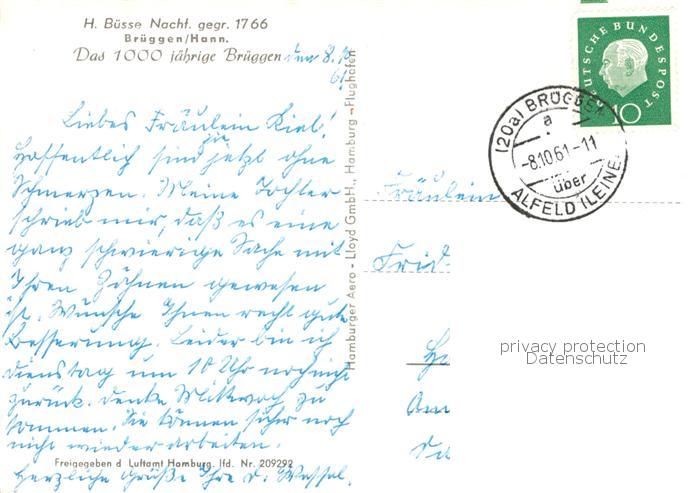 H. Büsse Nachf. gegr. 1766
Brüggen/Hann.
Das 1000 jährige Brüggen
den 8.10.
61
Liebes Fräulein Kiel!
Hoffentlich sind sie jetzt ohne
Schmerzen. Meine Tochter
schrieb mir, daß es eine
ganz schwierige Sache mit
Ihren Zähnen gewesen
ist. Wünsche Ihnen recht gute
Besserung. Leider bin ich
Dienstag um 10 Uhr noch nicht
zurück. Denke Mittwoch zu
kommen. Sie können sicher noch
nicht wieder arbeiten.
Herzliche Grüße Ihre
Freigegeben d Luftamt Hamburg. lfd. Nr. 209292
Hamburger Aero - Lloyd GmbH., Hamburg - Flughafen
DEUTSCHE BUNDESPOST
10
(20a) BRÜGGEN
a
-8.10.61-11
über
ALFELD (LEINE)
Fräulein
Frid.
Am
privacy protection
Datenschutz